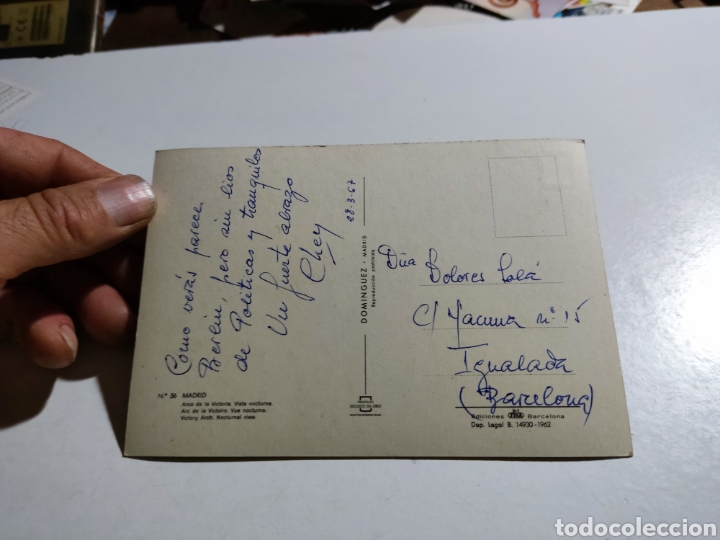 Como verás parece
Berlin, pero sin lios
de Politicas y tranquilos
Un fuerte abrazo
Chey
28-3-67
Nº 56 MADRID
Arco de la Victoria. Vista nocturna.
Arc de la Victoire. Vue nocturne.
Victory Arch. Nocturnal view.
DOMINGUEZ - MADRID
Reproducción prohibida
Dña Dolores
C/ nº 15
Igualada
(Barcelona)
Ediciones Barcelona
Dep. Legal B. 14930-1962
todocoleccion